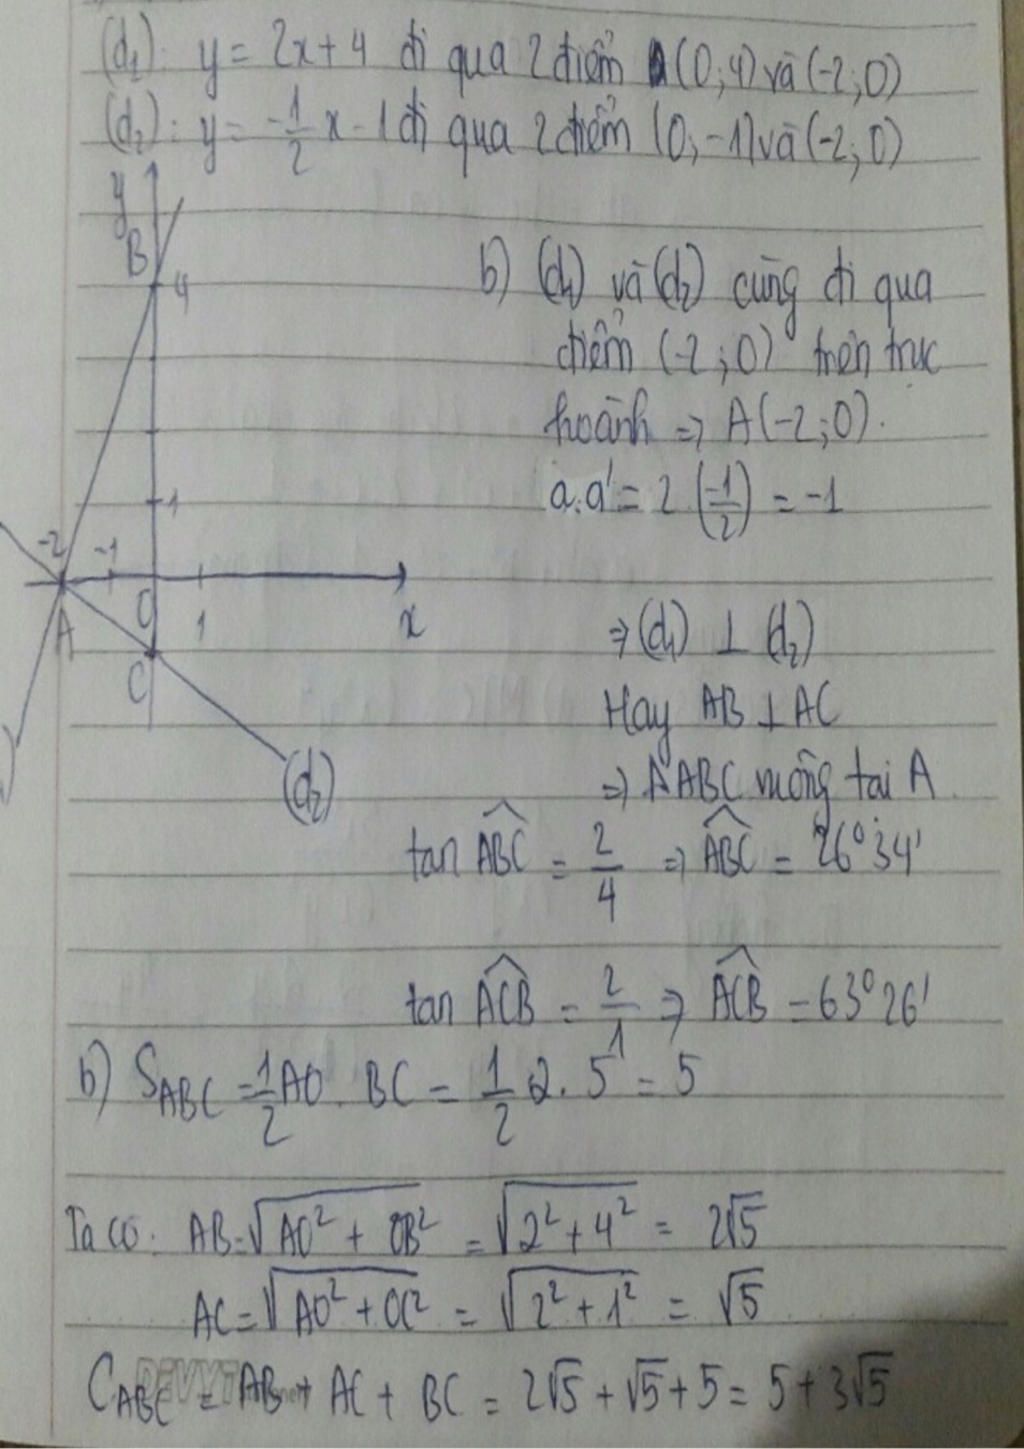 (d₁): y = 2x + 4 đi qua 2 điểm (0; 4) và (-2; 0)
(d₂): y = -1/2 x - 1 đi qua 2 điểm (0; -1) và (-2; 0)
y
B
4
1
-2 -1
O 1 x
A
C
(d₂)
b) (d₁) và (d₂) cùng đi qua
điểm (-2; 0) trên trục
hoành => A(-2; 0).
a.a' = 2.(-1/2) = -1
=> (d₁) ⊥ (d₂)
Hay AB ⊥ AC
=> ΔABC vuông tại A
tan ABC = 2/4 => ABC = 26°34'
tan ACB = 2/1 => ACB = 63°26'
b) S_ABC = 1/2 AO . BC = 1/2 2. 5 = 5
Ta có: AB = √(AO² + OB²) = √(2² + 4²) = 2√5
AC = √(AO² + OC²) = √(2² + 1²) = √5
C_ABC = AB + AC + BC = 2√5 + √5 + 5 = 5 + 3√5